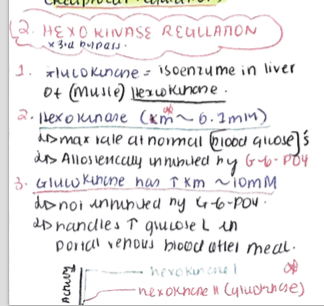 Reciprocal regulation
2. HEXOKINASE REGULATION
* 3rd bypass.
1. *Glucokinase = isoenzyme in liver
of (muscle) Hexokinase.
2. Hexokinase (km ~ 0.1mM)
↳ max rate at normal [blood glucose]'s
↳ Allosterically inhibited by G-6-PO4
3. Glucokinase has ↑ km ~10mM
↳ not inhibited by G-6-PO4.
↳ handles ↑ glucose in
portal venous blood after meal.
Activity
hexokinase I
hexokinase II (glucokinase)